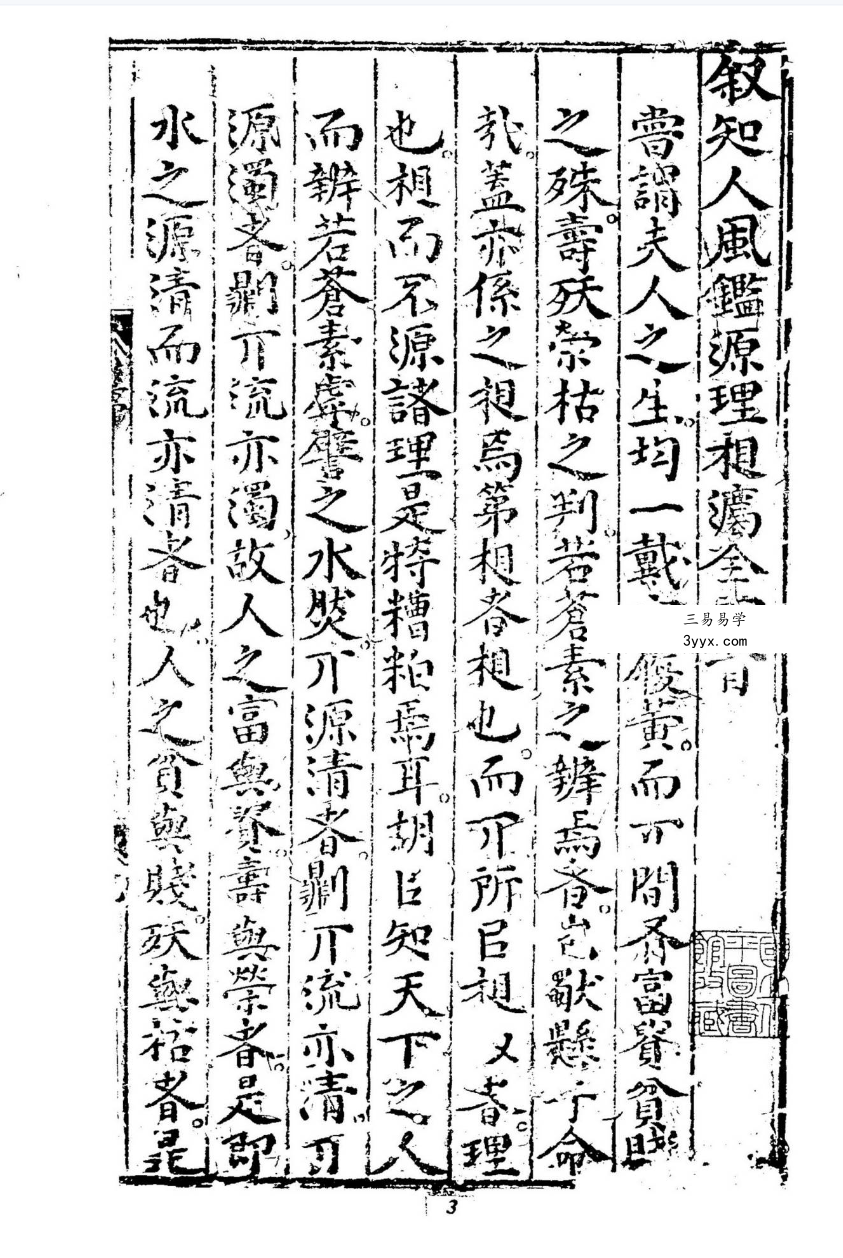 叙知人風鑑源理相灋全
嘗謂夫人之生均一戴履黃。而丌間有富貴貧賤
之殊。壽殀榮枯之判。若蒼素之辨焉者。豈獸懸于命
㢤。蓋亦係之相焉第相者相也。而丌所㠯相乂者。理
也。相而不源諸理是特糟粕焉耳。胡㠯知天下之人
而辨若蒼素虖。譬之水然。丌源清者。劓丌流亦清。丌
源濁者。劓丌流亦濁。故人之富與貴。壽與榮者。是即
水之源清而流亦清者也。人之貧與賤。殀與枯者。是
三易易学
3yyx.com
3